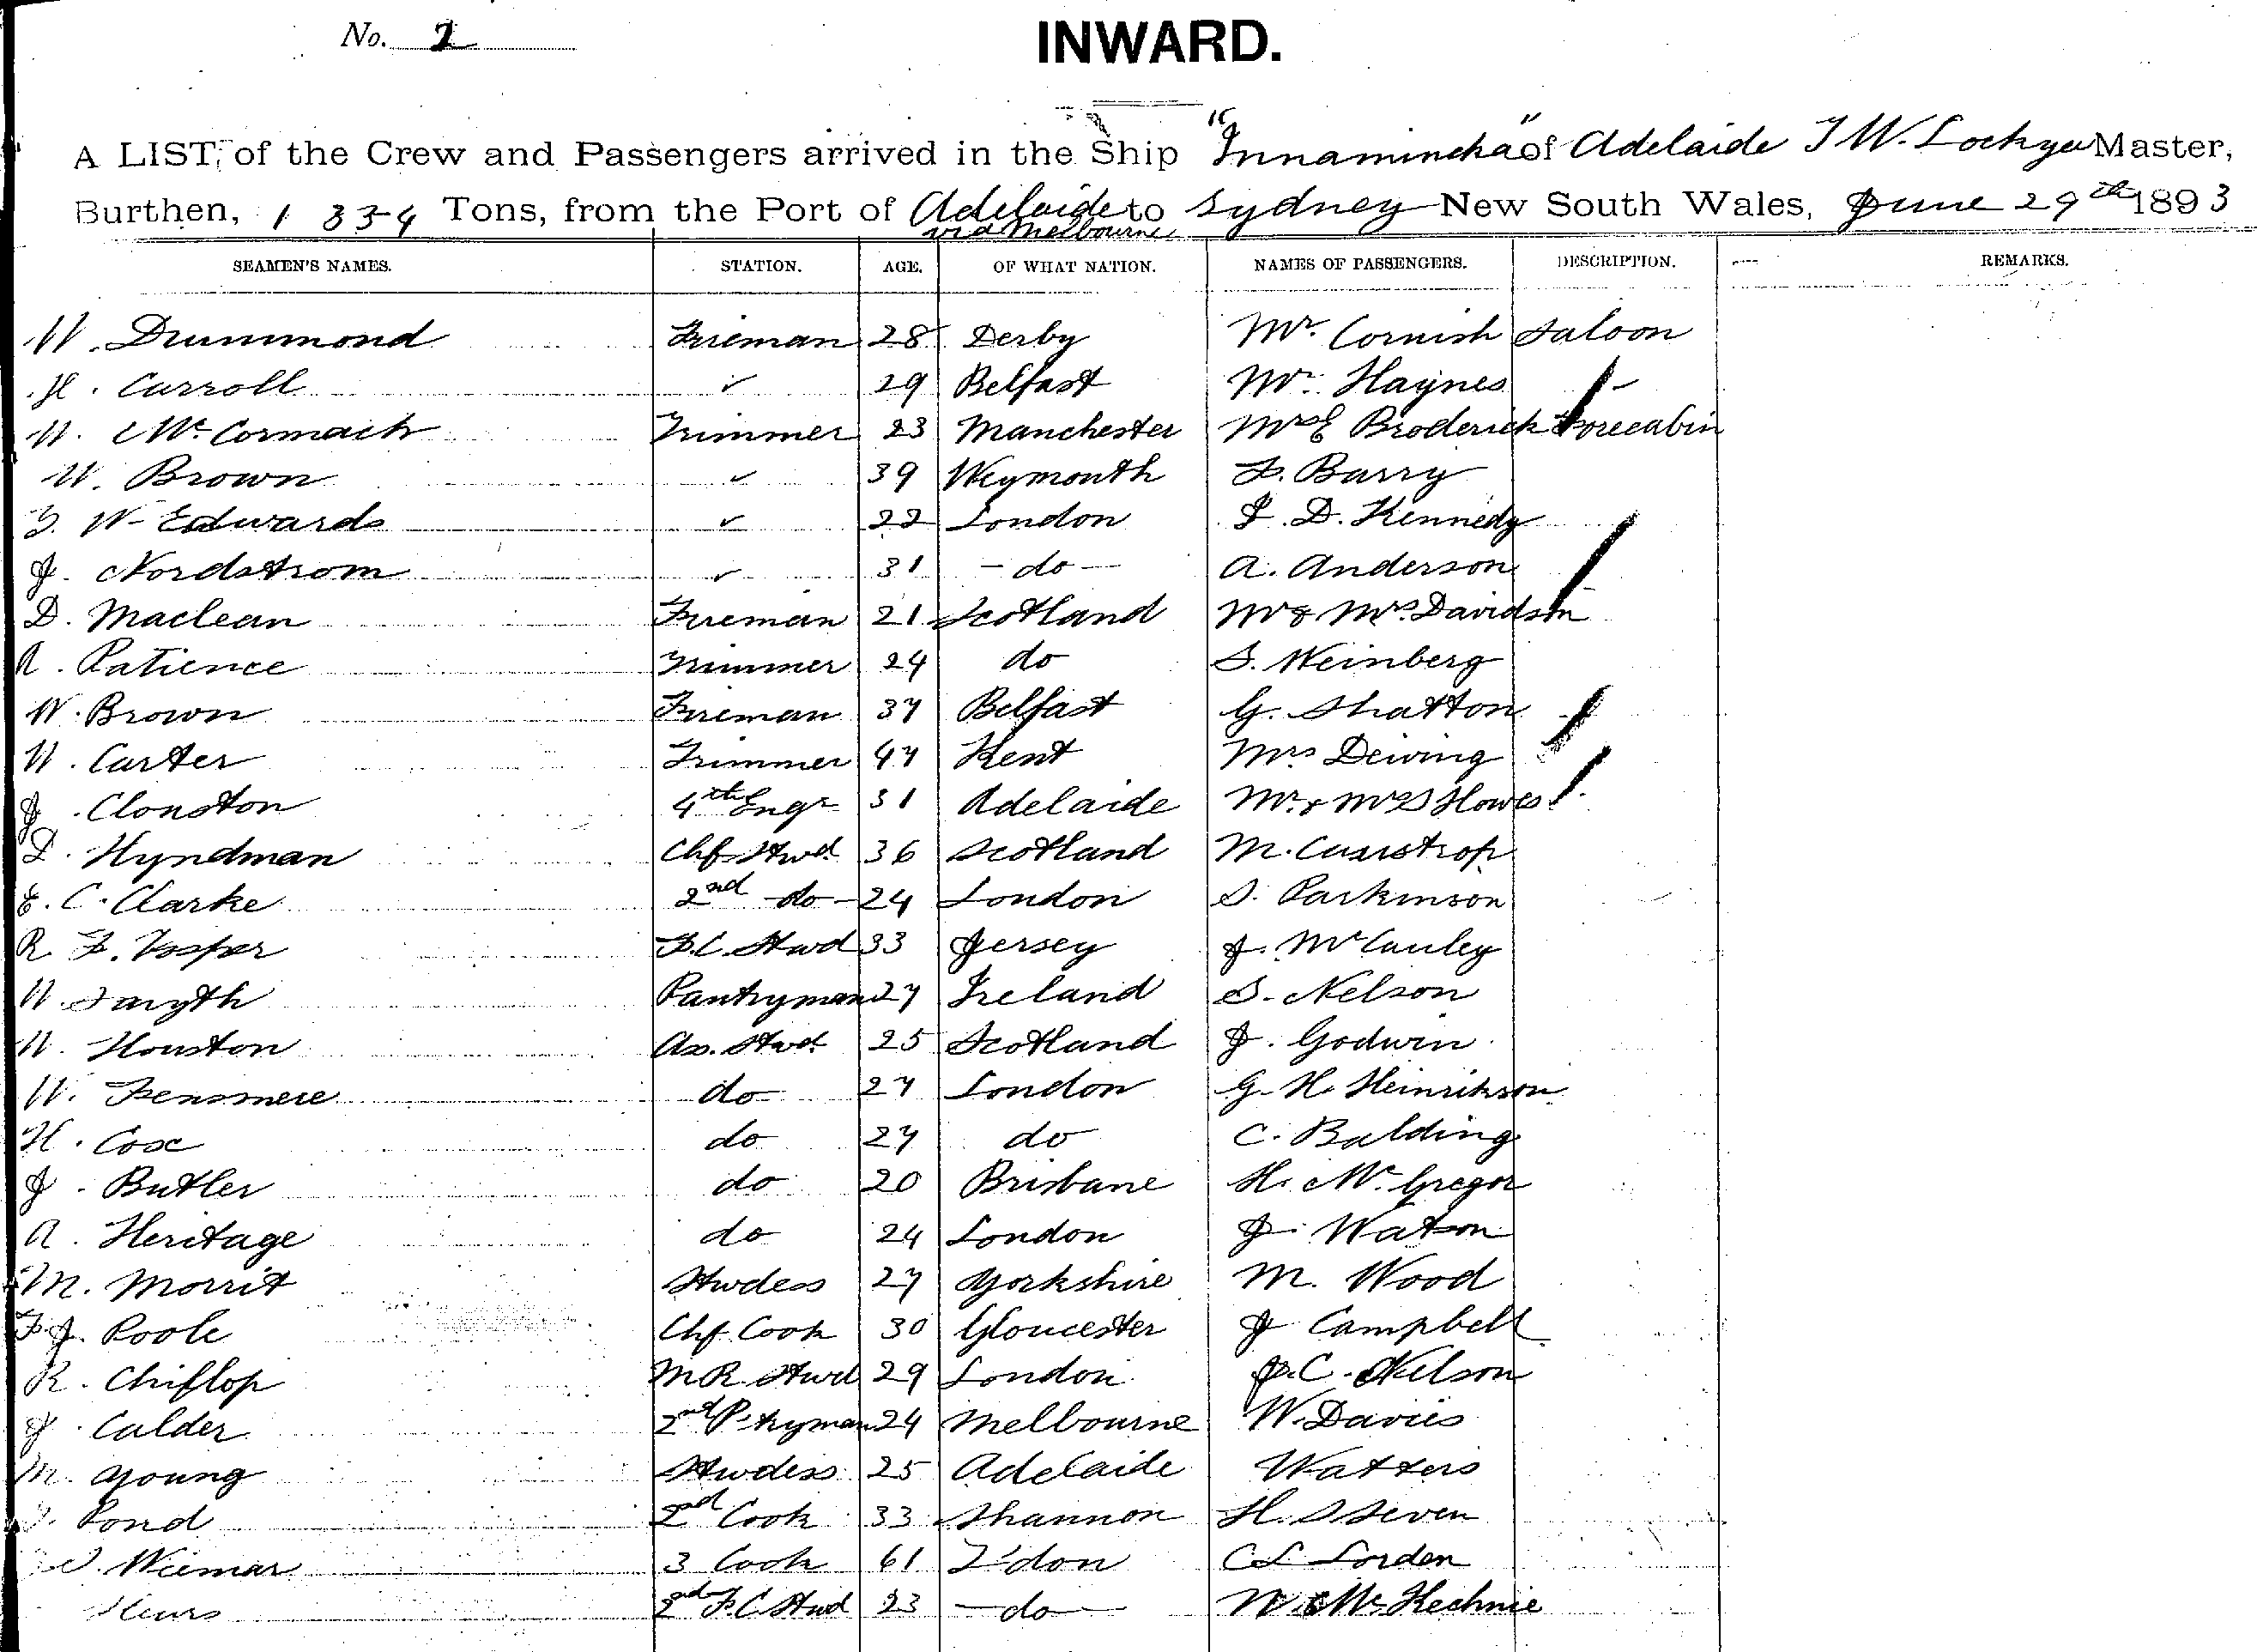 No. 2
INWARD.
A LIST, of the Crew and Passengers arrived in the Ship "Innamincka" of Adelaide J W. Lockyer Master,
Burthen, 1 334 Tons, from the Port of Adelaide via Melbourne to Sydney New South Wales, June 29th 1893
SEAMEN'S NAMES. STATION. AGE. OF WHAT NATION. NAMES OF PASSENGERS. DESCRIPTION. REMARKS.
W. Drummond Fireman 28 Derby Mr. Cornish Saloon
H. Carroll ✓ 29 Belfast Mr. Haynes
W. McCormack Trimmer 23 Manchester Mrs E Broderick Forecabin
W. Brown ✓ 39 Weymouth F. Barry
W Edwards ✓ 22 London J. D. Kennedy
J. Nordstrom ✓ 31 - do - A. Anderson
D. Maclean Fireman 21 Scotland Mr & Mrs. Davidson
A. Patience Trimmer 24 do S. Weinberg
W. Brown Fireman 37 Belfast G. Shatton
W. Carter Trimmer 47 Kent Mrs Dewing
J. Clonston 4th Engr 31 Adelaide Mr. & Mrs Howes
D. Hyndman Chf Stwd 36 Scotland M.
E. C. Clarke 2nd do 24 London S. Parkinson
R. F. Vosper F.C. Stwd 33 Jersey J. McCauley
W. Smyth Pantryman 27 Ireland S. Nelson
W. Houston As. Stwd 25 Scotland J. Godwin
W. Fensmere do 27 London G. H. Heinrikson
H. Cox do 27 do C. Balding
J. Butler do 20 Brisbane H. McGregor
A. Heritage do 24 London J. Watson
M. Morrit Stwdess 27 Yorkshire M. Wood
F. J. Poole Chf. Cook 30 Gloucester J Campbell
R. Chiflop M.R. Stwd 29 London J. C. Nelson
J. Calder 2nd P-tryman 24 Melbourne W. Davies
M. Young Stwdess 25 Adelaide Watters
Pond 2nd Cook 33 Shannon H.
Wiemar 3 Cook 61 L'don C L Lorden
2nd F.C. Stwd 23 - do - McKechnie